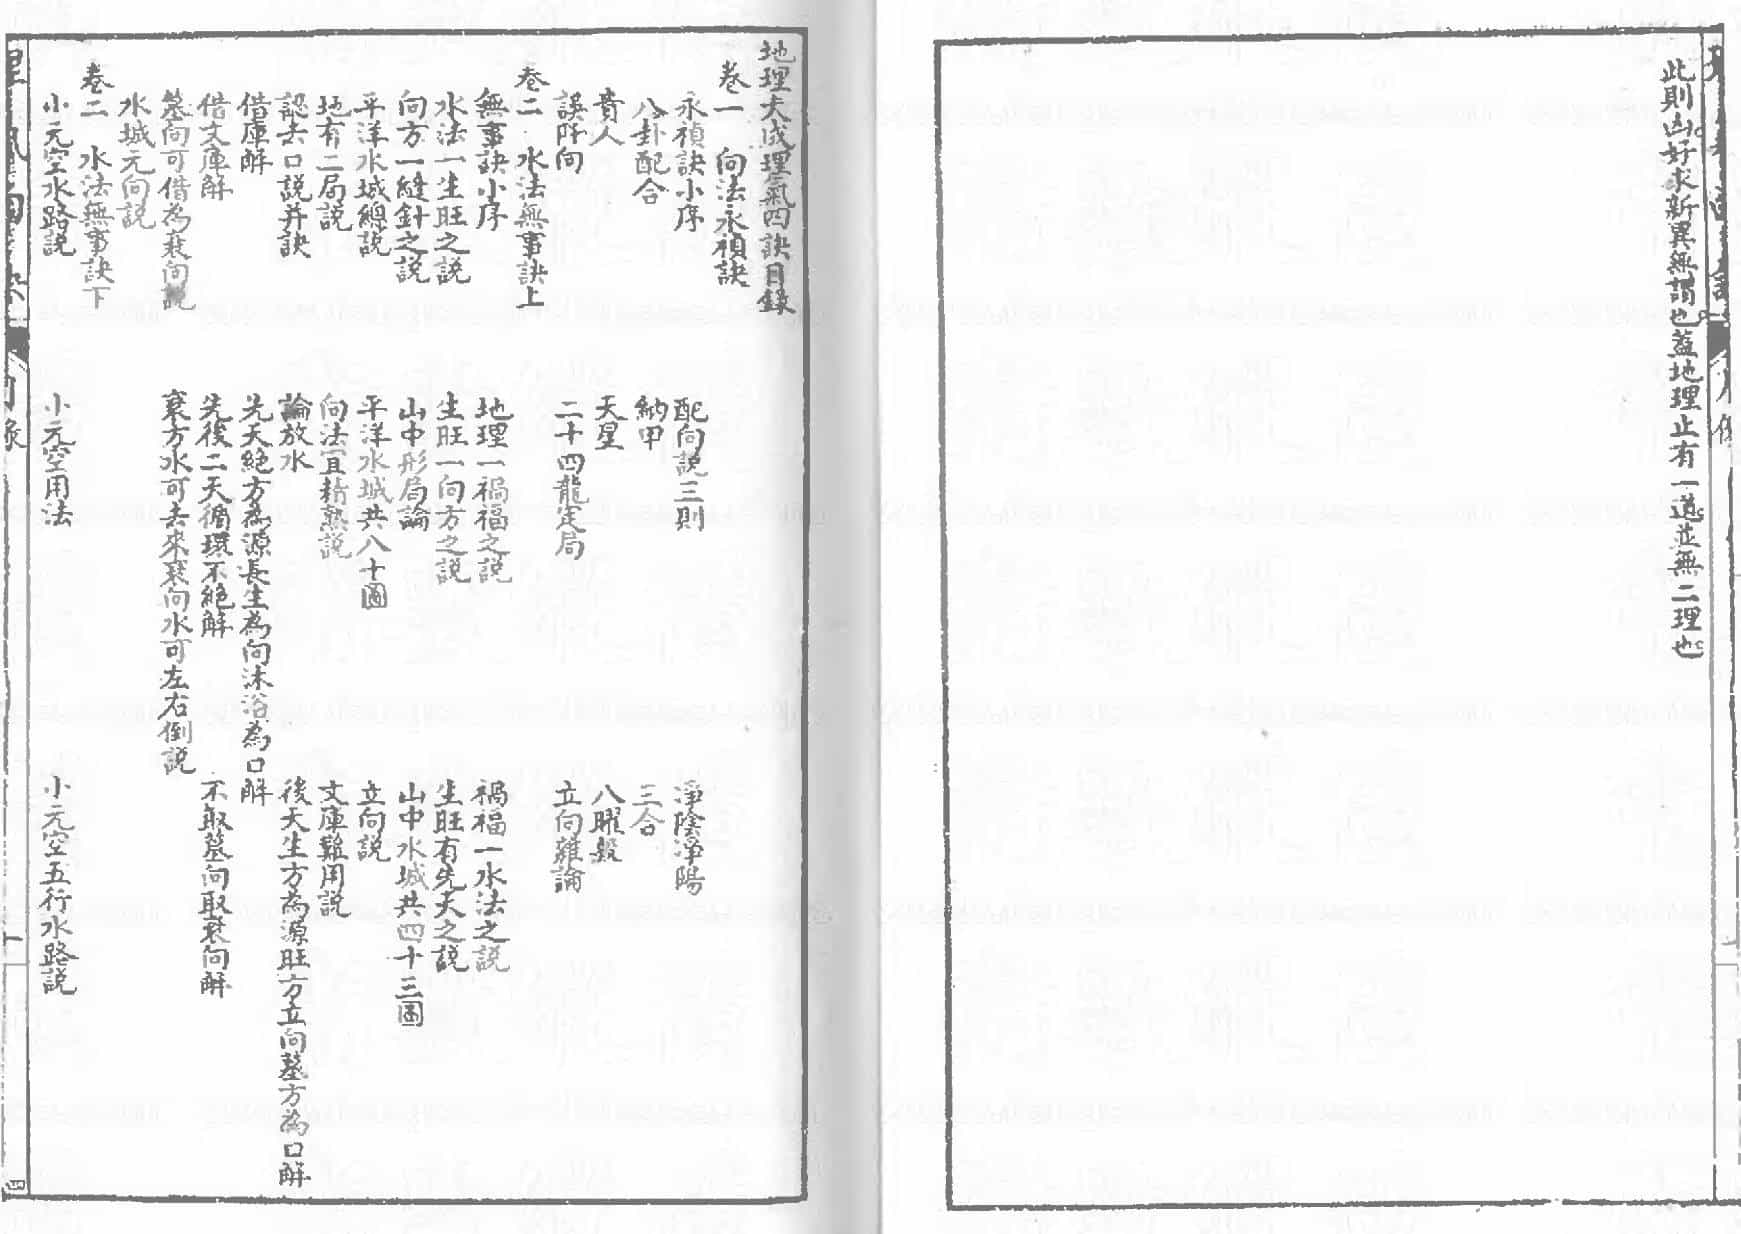 此則凶好求新異無謂也蓋地理止有一道並無二理也
地理大成理氣四訣目錄
卷一 向法永禎訣
永禎訣小序 配向說三則 淨陰淨陽
八卦配合 納甲 三合
貴人 天星 八曜煞
誤阡向 二十四龍定局 立向雜論
卷二 水法無事訣上
無事訣小序 地理一禍福之說 禍福一水法之説
水法一生旺之說 生旺一向方之説 生旺有先天之説
向方一縫針之說 山中形局論 山中水城共四十三圖
平洋水城總説 平洋水城共八十圖 立向説
地有二局說 向法宜精熟說 文庫難用説
認去口説并訣 論放水 後天生方為源旺方立向墓方為口解
借庫解 先天絕方為源長生為向沐浴為口解
借文庫解 先後二天循環不絕解 不取墓向取衰向解
墓向可借為衰向說 衰方水可去來衰向水可左右倒説
水城元向説
卷二 水法無事訣下
小元空水路説 小元空用法 小元空五行水路説
四